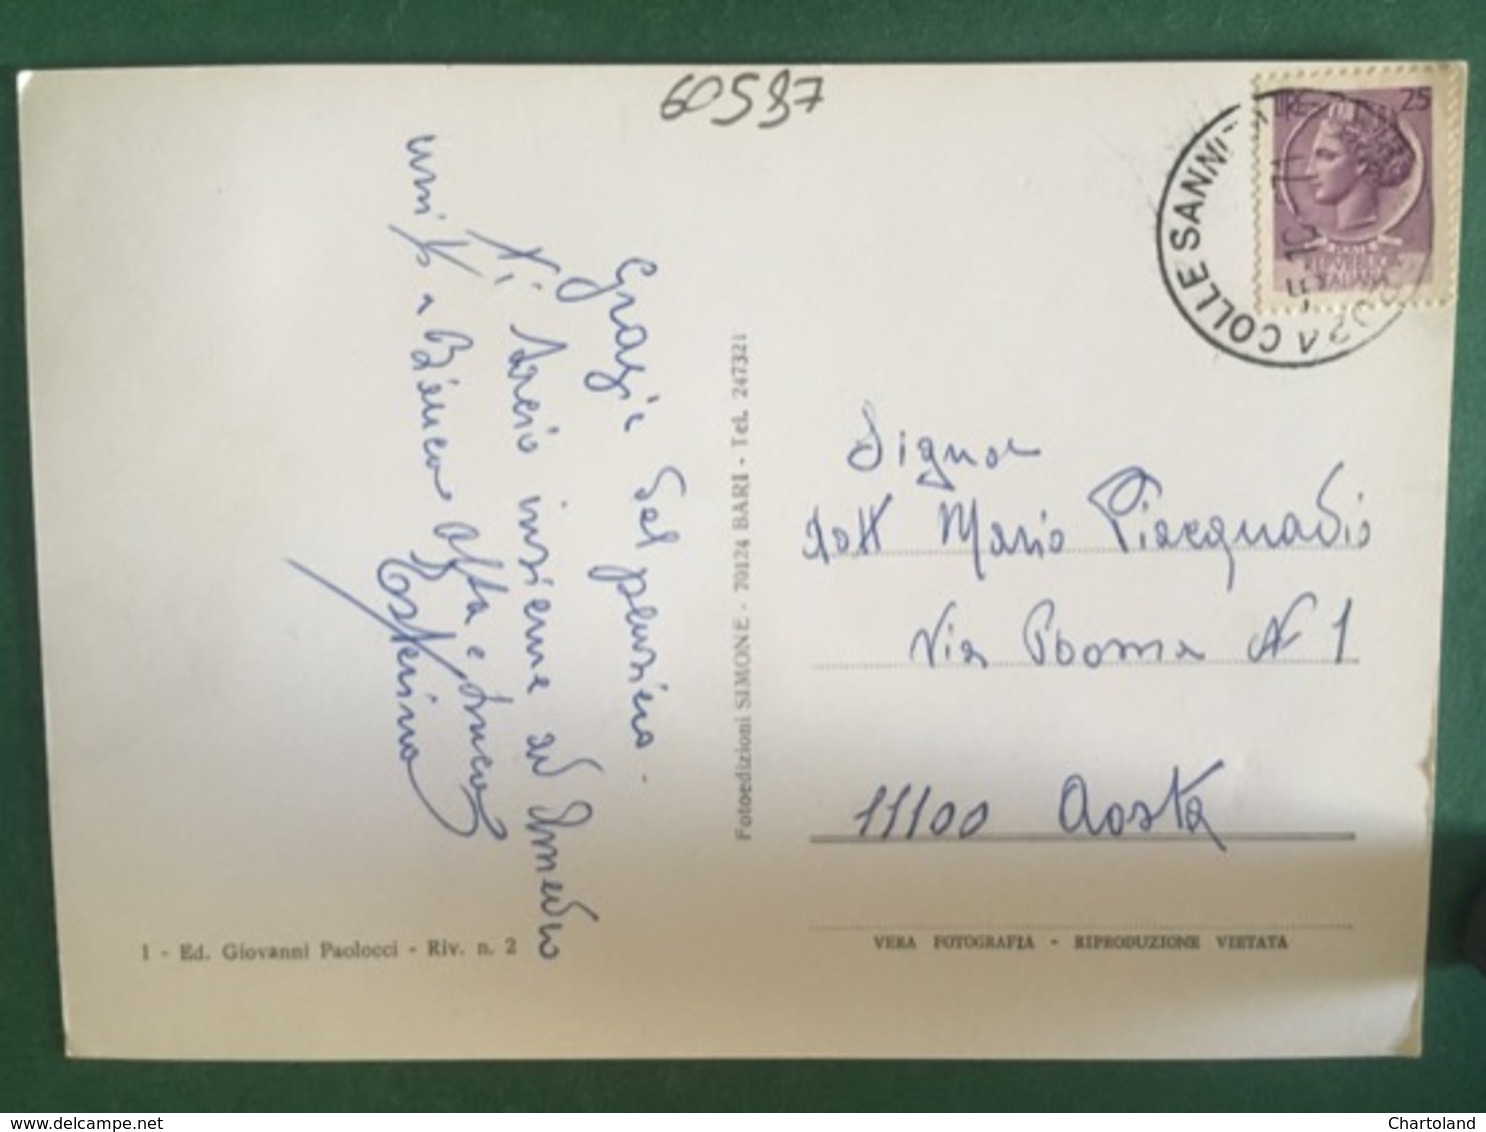 60597
LIRE 25
REPUBBLICA
ITALIANA
COLLE SANNITA
Signor
dott Mario Piacquadio
Via Roma N 1
11100 Aosta
VERA FOTOGRAFIA - RIPRODUZIONE VIETATA
Fotoedizioni SIMONE - 70124 BARI - Tel. 247321
Grazie del pensiero.
Vi bacio insieme ad Amedeo
Bianca
Esterina
1 - Ed. Giovanni Paolocci - Riv. n. 2
www.delcampe.net
Chartoland